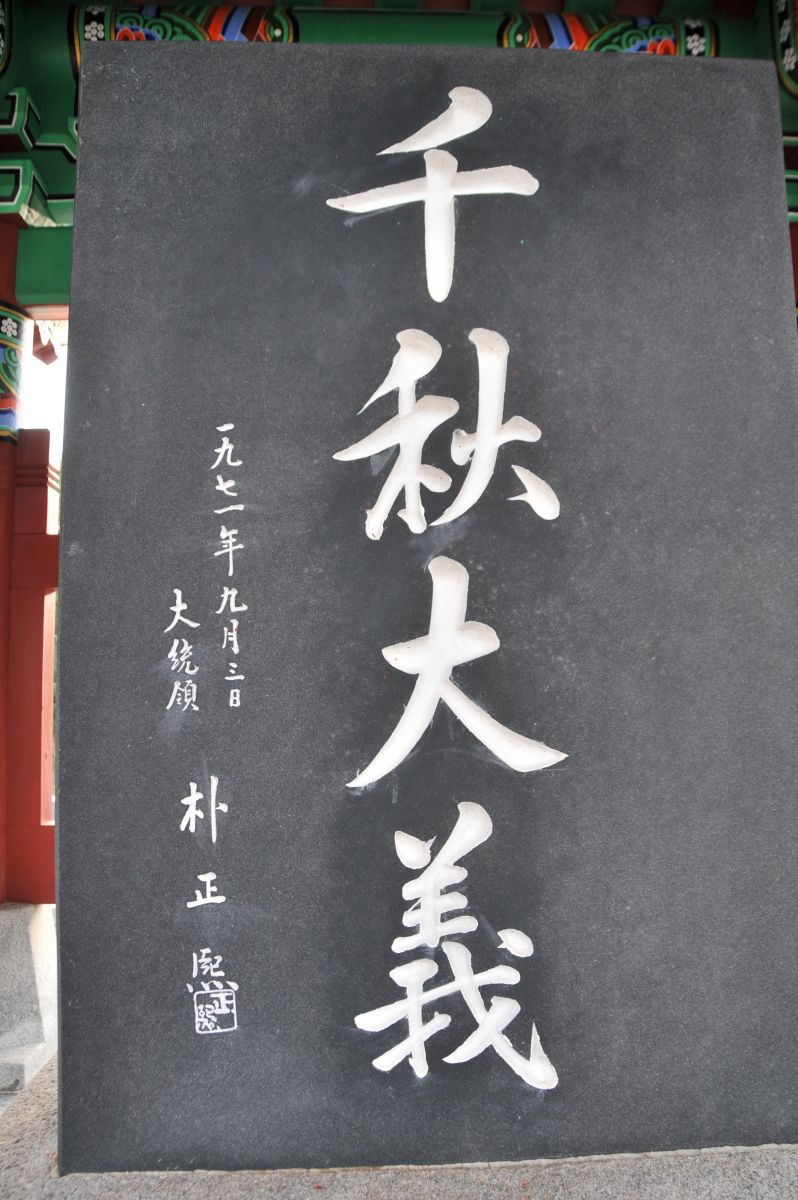 千秋大義
一九七一年九月三日
大統領
朴正熙